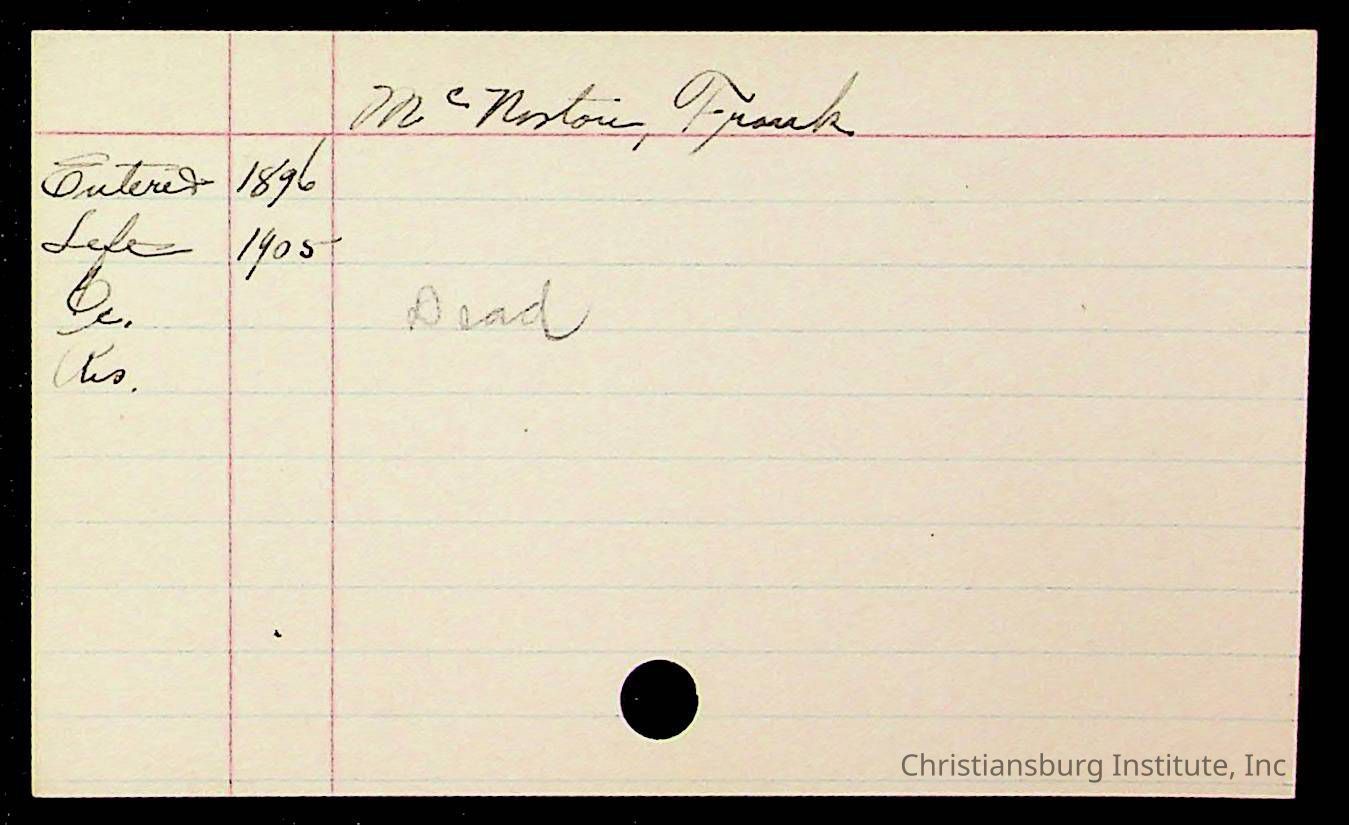 Mc Norton, Frank
Entered 1896
Left 1905
Oc.
Dead
Res.
Christiansburg Institute, Inc